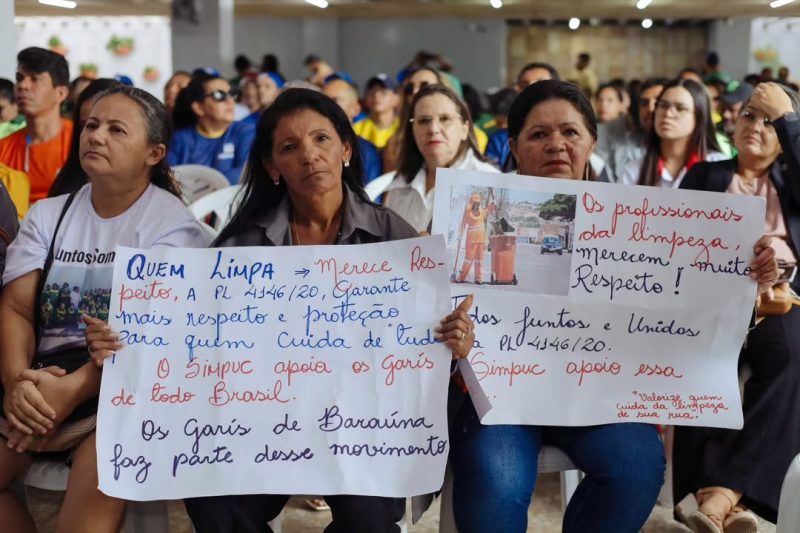 untosIom
QUEM LIMPA → Merece Res-
peito, A PL 4146/20, Garante
mais respeito e proteção
para quem cuida de "tudo
O SIMPUC apoia os Garis
de todo Brasil.
Os Garís de Baraúna
faz parte desse movimento.
Os profissionais
da limpeza,
merecem muito
Respeito!
Todos Juntos e Unidos
a PL 4146/20.
Simpuc apoio essa
"Valorize quem
cuida da limpeza
de sua rua.